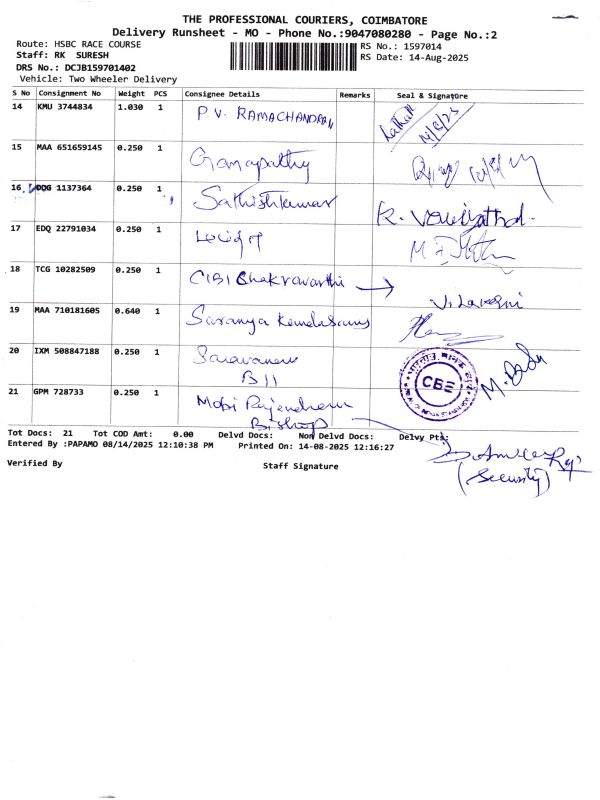 THE PROFESSIONAL COURIERS, COIMBATORE
Delivery Runsheet - MO - Phone No.:9047080280 - Page No.:2
Route: HSBC RACE COURSE
RS No.: 1597014
Staff: RK SURESH
RS Date: 14-Aug-2025
DRS No.: DCJB159701402
Vehicle: Two Wheeler Delivery
S No Consignment No Weight PCS Consignee Details Remarks Seal & Signature
14 KMU 3744834 1.030 1 P V. RAMACHANDRAN
14/8/25
15 MAA 651659145 0.250 1 Ganapathy
16 DQG 1137364 0.250 1 Sathishkumar
17 EDQ 22791034 0.250 1
18 TCG 10282509 0.250 1 CIBI Chakravarthi
19 MAA 710181605 0.640 1 Saranya
20 IXM 508847188 0.250 1
CBE
21 GPM 728733 0.250 1
Bishop
Tot Docs: 21 Tot COD Amt: 0.00 Delvd Docs: Non Delvd Docs: Delvy Pts:
Entered By :PAPAMO 08/14/2025 12:10:38 PM Printed On: 14-08-2025 12:16:27
(Security)
Verified By Staff Signature